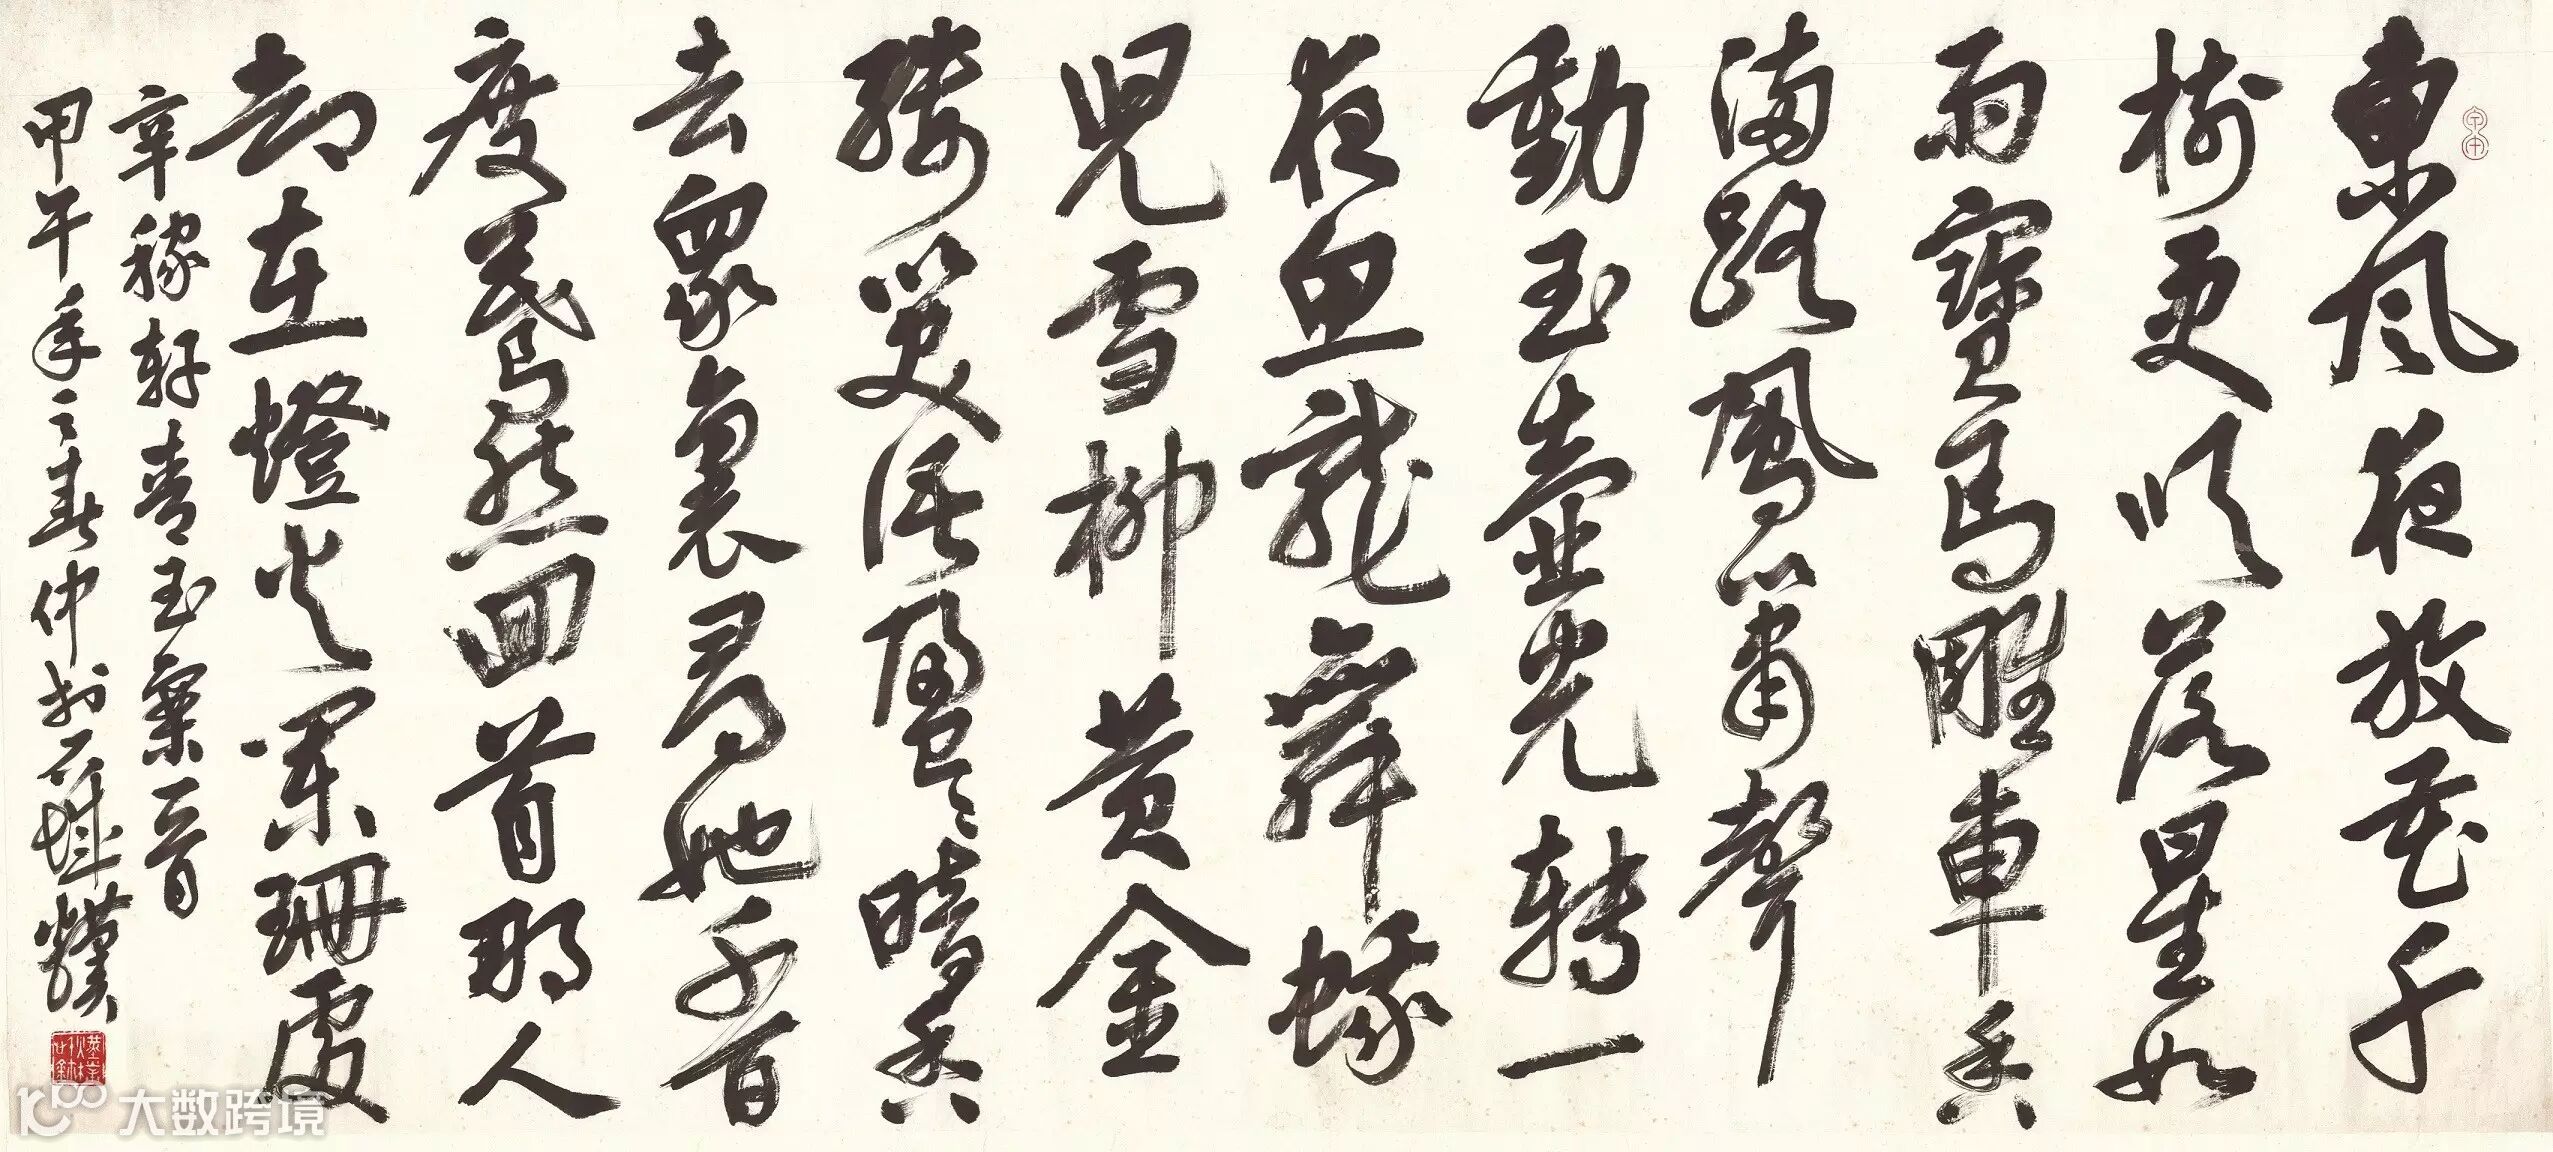 東風夜放花千
樹更吹落星如
雨寶馬雕車香
滿路鳳簫聲
動玉壺光轉一
夜魚龍舞蛾
兒雪柳黄金
縷笑語盈盈暗香
去衆裏尋她千百
度驀然回首那人
却在燈火闌珊處
辛稼軒青玉案一首
甲午年之春仲於石城
大数跨境